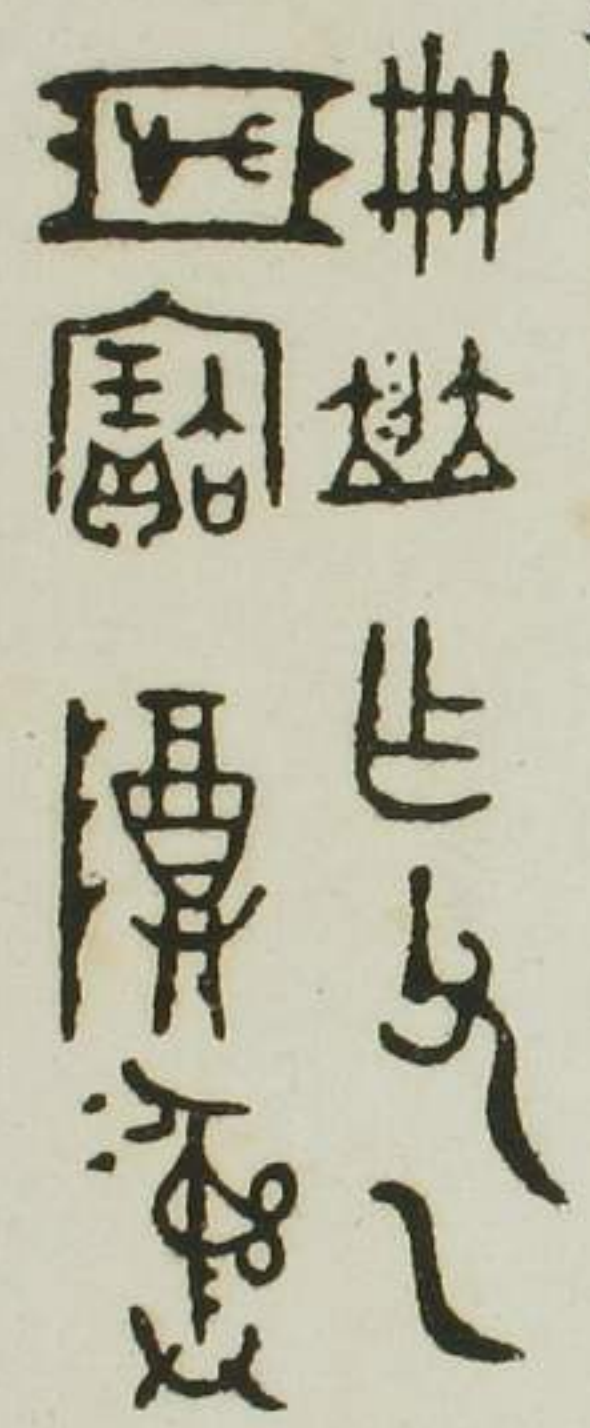 冊乍父乙
寶尊彝